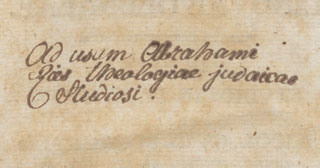 Ad usum Abrahami
theologiae judaicae
Studiosi.